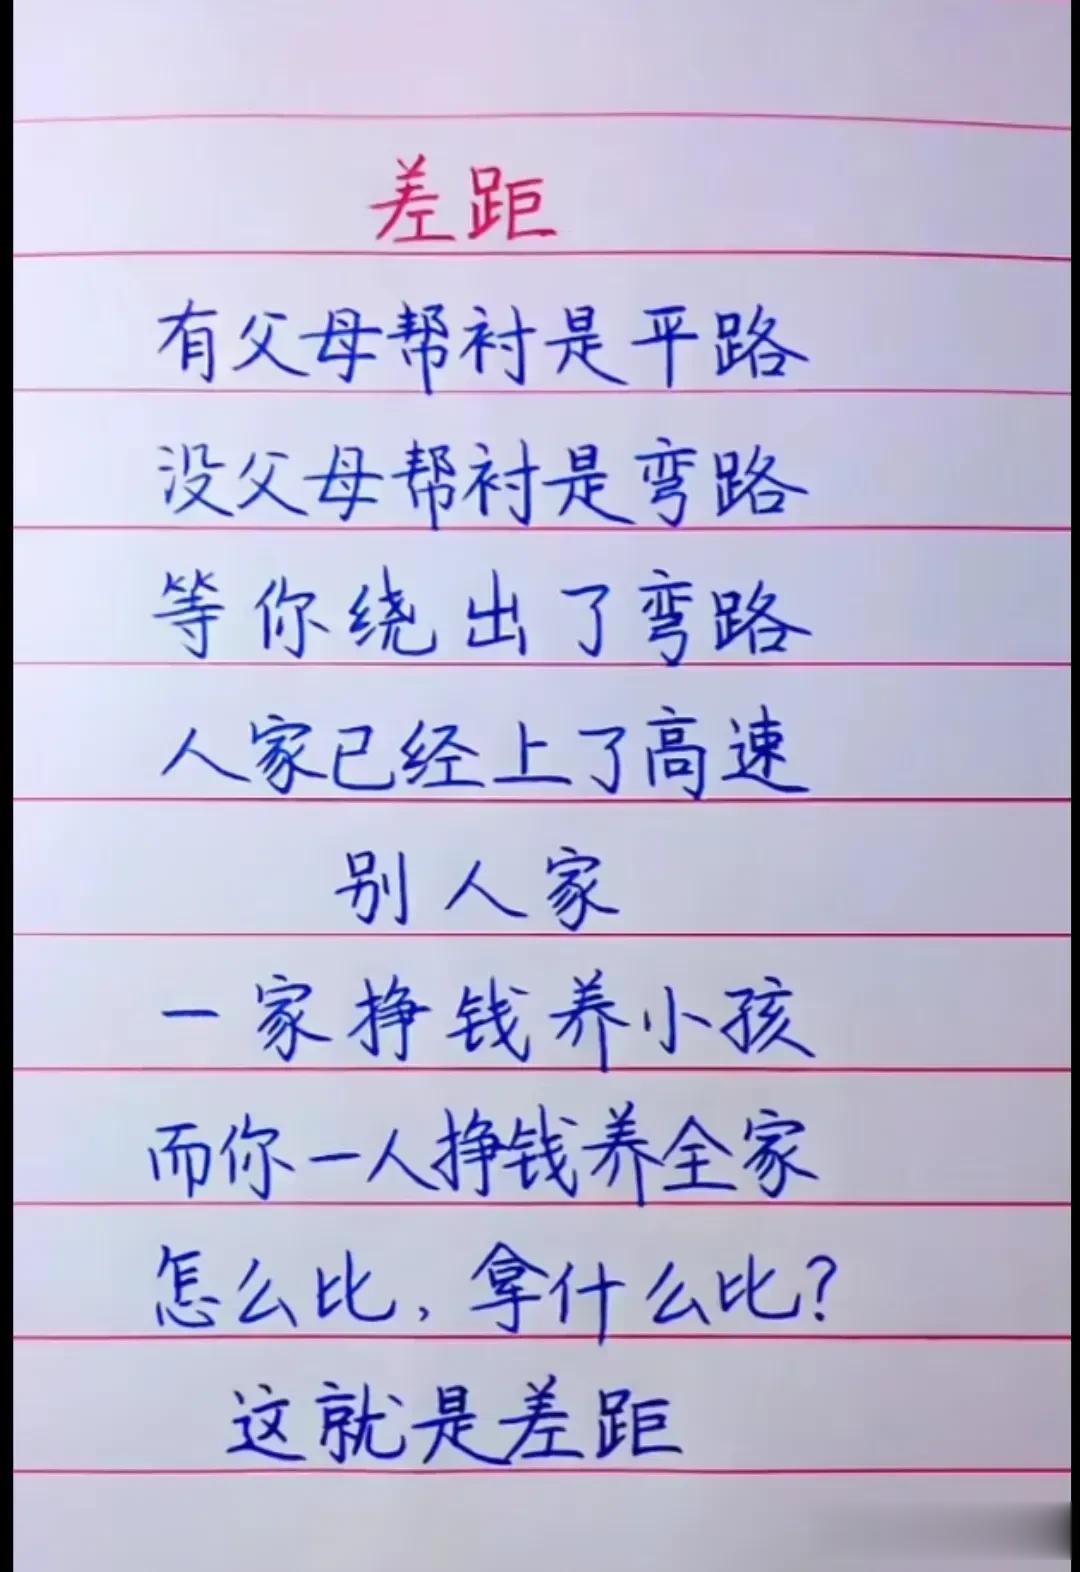 差距
有父母帮衬是平路
没父母帮衬是弯路
等你绕出了弯路
人家已经上了高速
别人家
一家挣钱养小孩
而你一人挣钱养全家
怎么比，拿什么比？
这就是差距